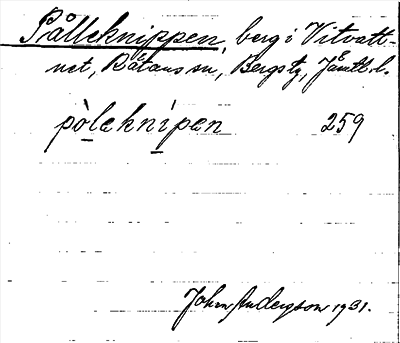 Pålleknippen, berg i Vitvatt-
net, Rätans sn, Bergstg, Jämtl. l.
pòlеknípen 259
John Anderson 1931.